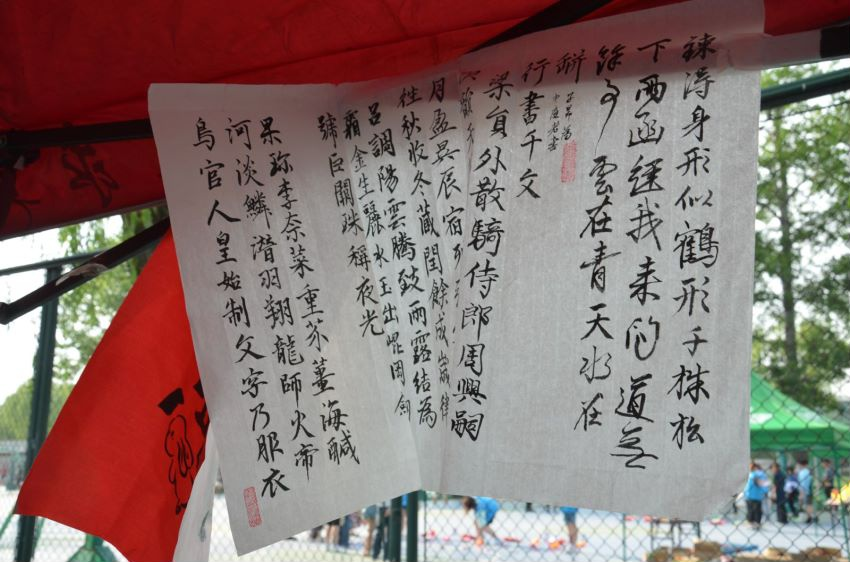 練得身形似鶴形千株松
下兩函經我來問道無
餘 雲在青天水在
瓶
行書千文
梁員外散騎侍郎周興嗣
月盈昃辰宿
往秋收冬藏閏餘成歲律
呂調陽雲騰致雨露結為
霜金生麗水玉出崑岡劍
號巨闕珠稱夜光
果珍李柰菜重芥薑海鹹
河淡鱗潛羽翔龍師火帝
鳥官人皇始制文字乃服衣